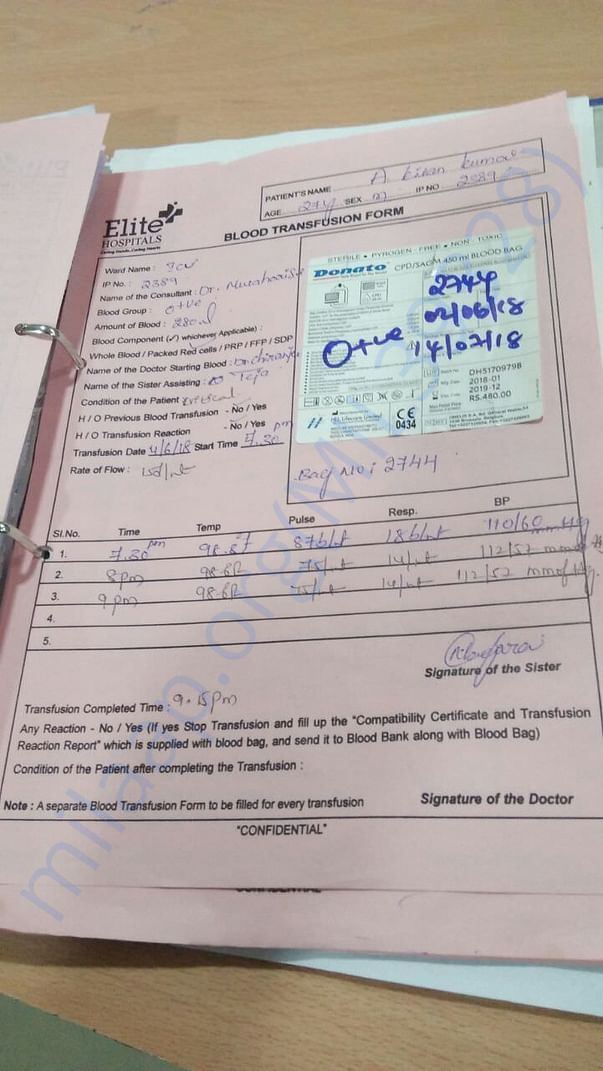 PATIENT'S NAME A kiran kumar
AGE 27y SEX M IP NO 2389
Elite
HOSPITALS
BLOOD TRANSFUSION FORM
Ward Name :
IP No. : 2389
Name of the Consultant : Dr.
Blood Group : O+ve
Amount of Blood : 280ml
Blood Component (✓) whichever Applicable) :
Whole Blood / Packed Red cells / PRP / FFP / SDP
Name of the Doctor Starting Blood :
Name of the Sister Assisting : Teja
Condition of the Patient :
H / O Previous Blood Transfusion - No / Yes
H / O Transfusion Reaction - No / Yes
Transfusion Date 4/6/18 Start Time 7.30 pm
Rate of Flow :
STERILE • PYROGEN - FREE • NON - TOXIC
Donato CPD/SAGM 450 ml BLOOD BAG
2744
02/06/18
O+ve 14/07/18
DH5170979B
2018-01
2019-12
RS.480.00
HLL Lifecare Limited
CE
0434
Bag No : 2744
Sl.No. Time Temp Pulse Resp. BP
1. 7.30 pm 98.8F 87b/mt 18b/mt 110/60 mmHg
2. 8pm 98.6F 75/mt 14/mt 112/52 mmof Hg
3. 9pm 98.6F 75/mt 14/mt 112/52 mmof Hg.
4.
5.
Signature of the Sister
Transfusion Completed Time : 9.15pm
Any Reaction - No / Yes (If yes Stop Transfusion and fill up the "Compatibility Certificate and Transfusion
Reaction Report" which is supplied with blood bag, and send it to Blood Bank along with Blood Bag)
Condition of the Patient after completing the Transfusion :
Signature of the Doctor
Note : A separate Blood Transfusion Form to be filled for every transfusion
"CONFIDENTIAL"